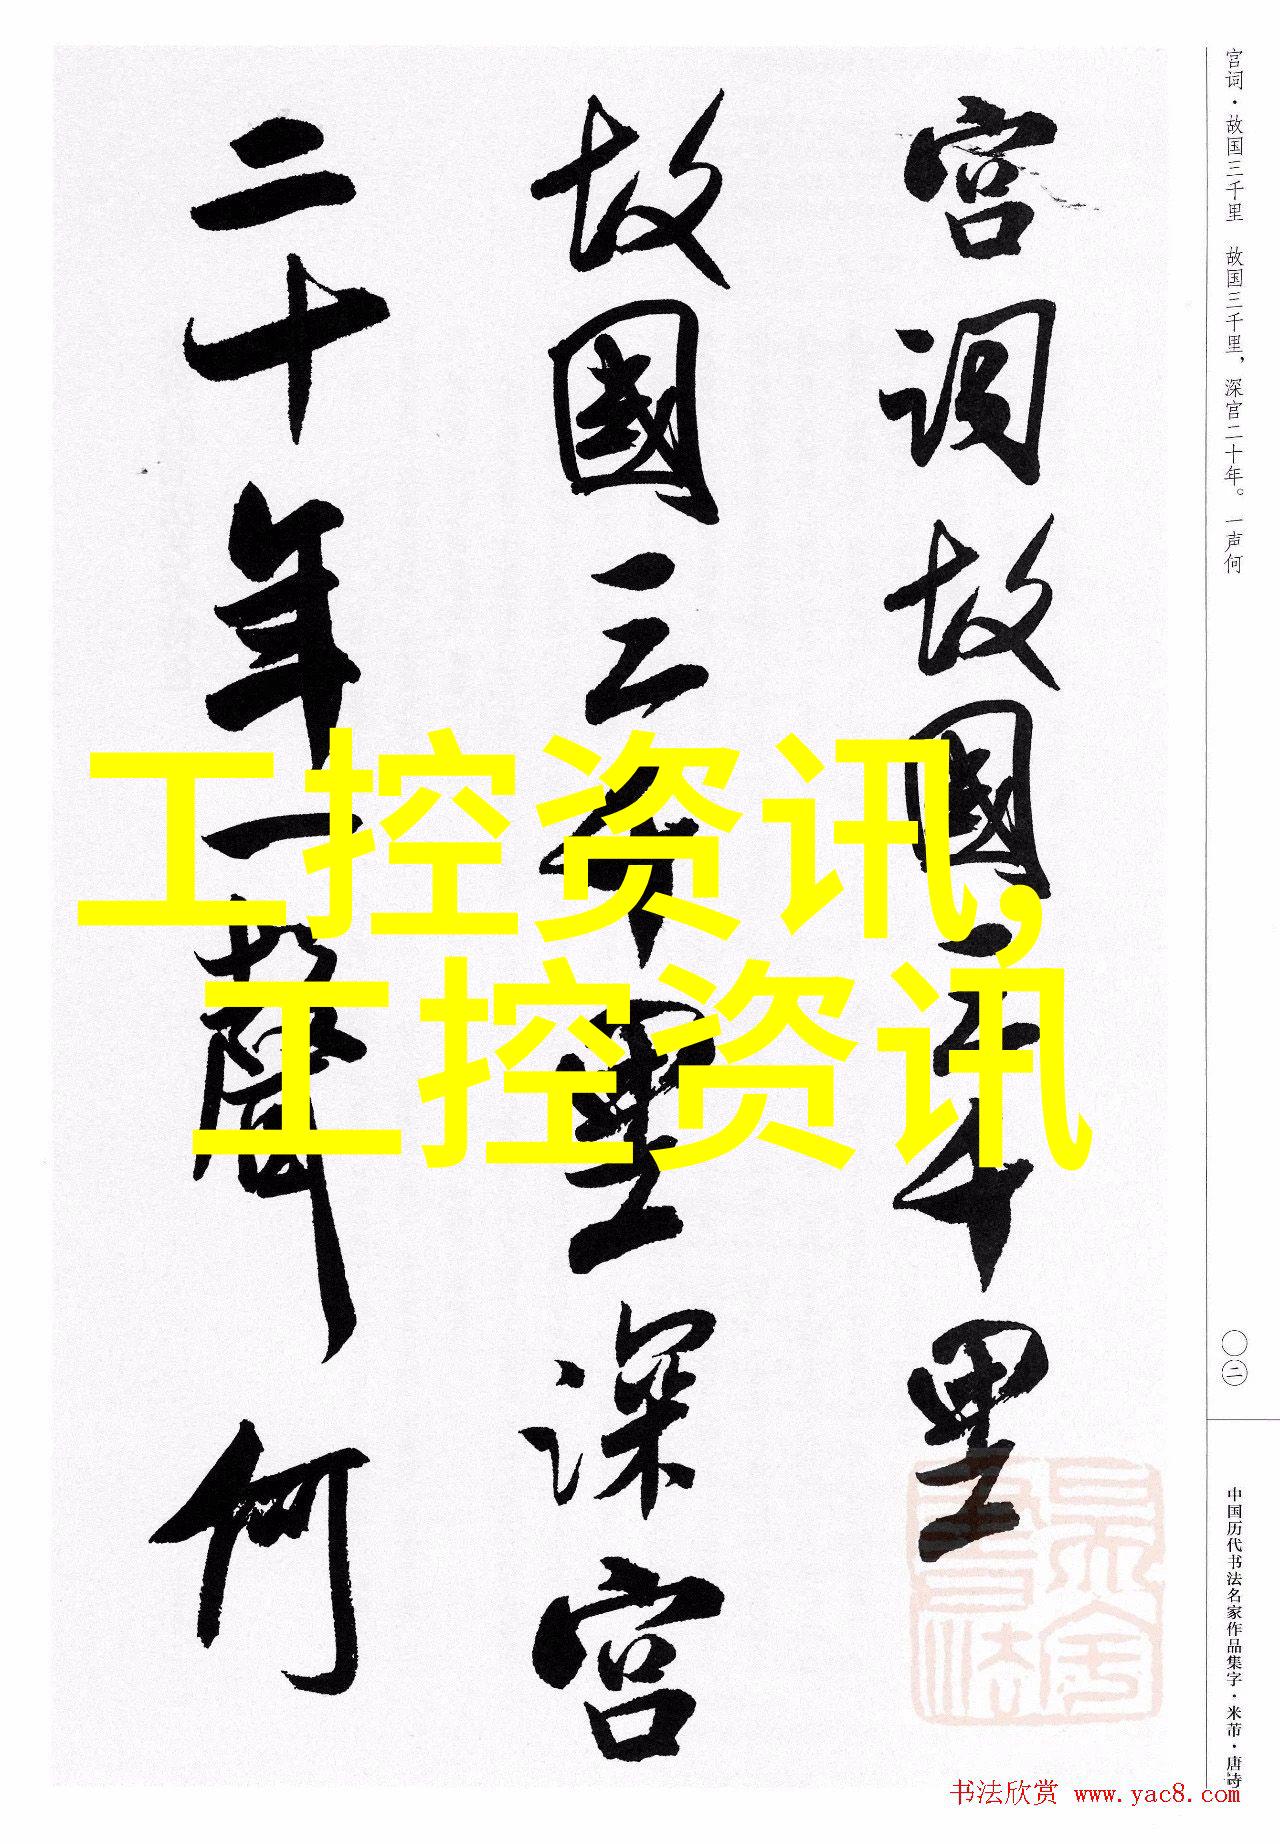 宫词故國三千里
故國三千里深宫
二十年一聲何
工控资讯,
工控资讯
宫词·故国三千里 故国三千里，深宫二十年。一声何
〇二
中国历代书法名家作品集字·米芾·唐诗
书法欣赏 www.yac8.com